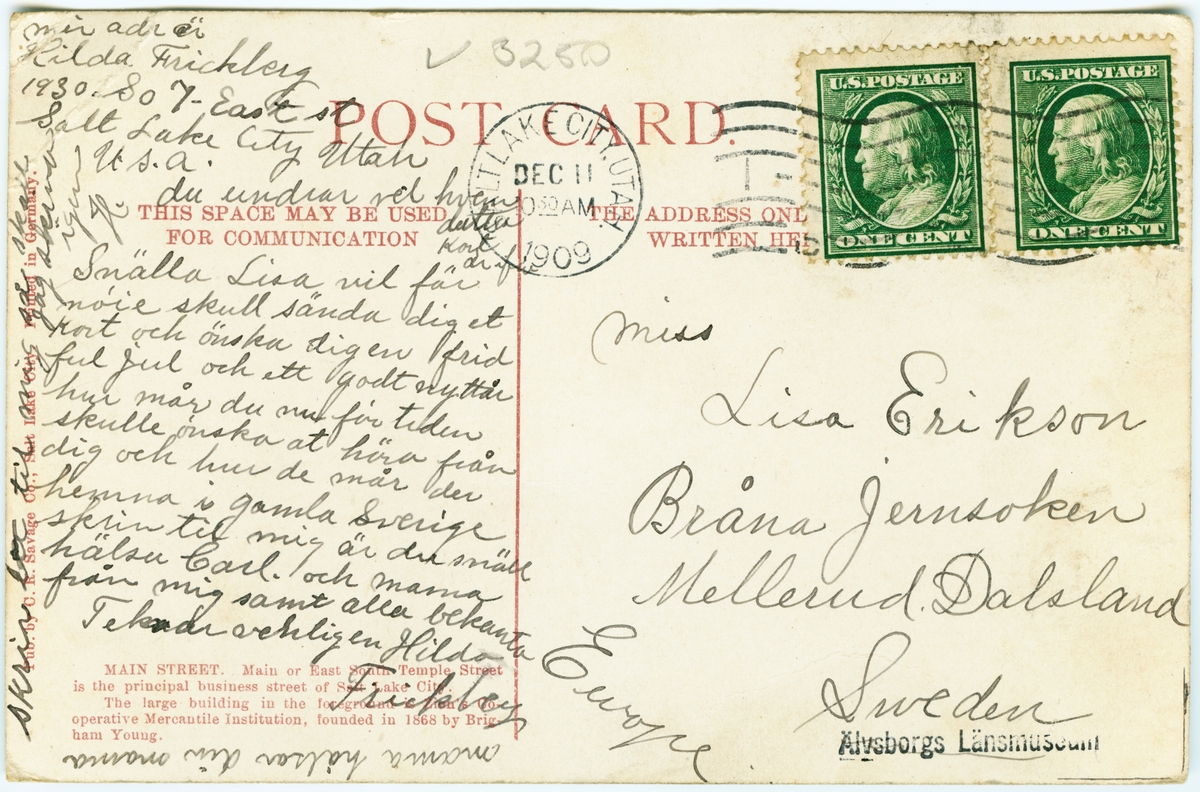 min adr är
Hilda Frickberg
1930. So 7- East st
Salt Lake City Utah
U.S.A.
du undrar vel hvem
detta
kort
är
V 3250
POST CARD.
SALT LAKE CITY, UTAH.
DEC 11
10 30 AM
1909
U.S. POSTAGE
ONE CENT
U.S. POSTAGE
ONE CENT
THIS SPACE MAY BE USED
FOR COMMUNICATION
THE ADDRESS ONL
WRITTEN HE
Snälla Lisa vil för
nöie skull sända dig et
kort och önska dig en frid
ful jul och ett godt nyttår
hur mår du nu för tiden
skulle önska at höra från
dig och hur de mår der
hemma i gamla Sverige
skrin til mig är du snäll
hälsa Carl. och mama
från mig samt alla bekanta
Teknar venligen Hilda
Frickberg
miss
Lisa Erikson
Bråna Jernsoken
Mellerud. Dalsland
Sweden
Europe
Älvsborgs Länsmuseum
MAIN STREET. Main or East South Temple Street
is the principal business street of Salt Lake City.
The large building in the foreground is Zion's Co-
operative Mercantile Institution, founded in 1868 by Brig-
ham Young.
mama hälsar din mama
skriv til mig jag skall
jag skriva
igen
H.
Pub. by C. R. Savage Co., Salt Lake City. Printed in Germany.